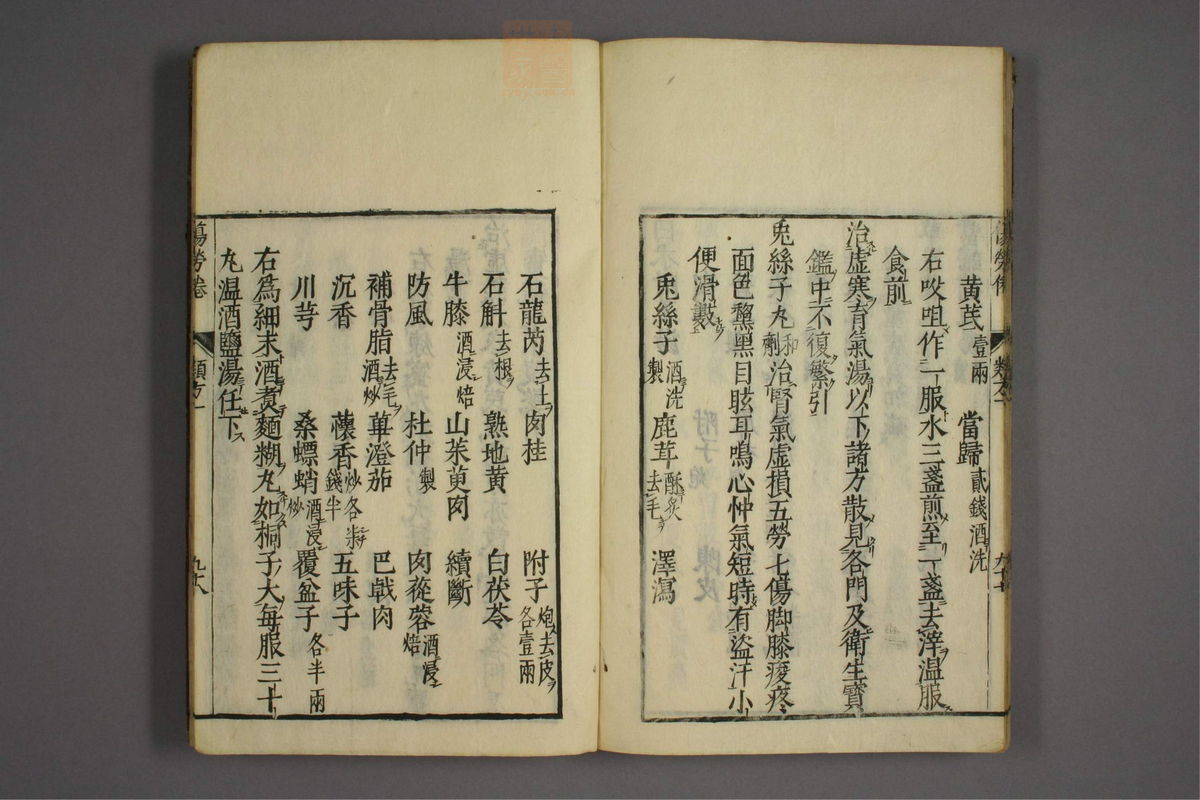 黄芪壹兩 當歸貳錢酒洗
右㕮咀作一服水三盞煎至一盞去滓温服
食前
治虛寒育氣湯以下諸方散見各門及衛生寶
鑑中不復繁引
兎絲子丸和劑治腎氣虛損五勞七傷脚膝痠疼
面色黧黑目眩耳鳴心忡氣短時有盜汗小
便滑數
兎絲子酒洗製 鹿茸酥炙去毛 澤瀉
石龍芮去土 肉桂 附子炮去皮各壹兩
石斛去根 熟地黄 白茯苓
牛膝酒浸焙 山茱萸肉 續斷
防風 杜仲製 肉蓯蓉酒浸焙
補骨脂去毛酒炒 蓽澄茄 巴戟肉
沉香 蘹香炒各柒錢半 五味子
川芎 桑螵蛸酒浸炒 覆盆子各半兩
右爲細末酒煑麵糊丸如桐子大每服三十
丸温酒鹽湯任下
傷勞卷 類方一 九十八